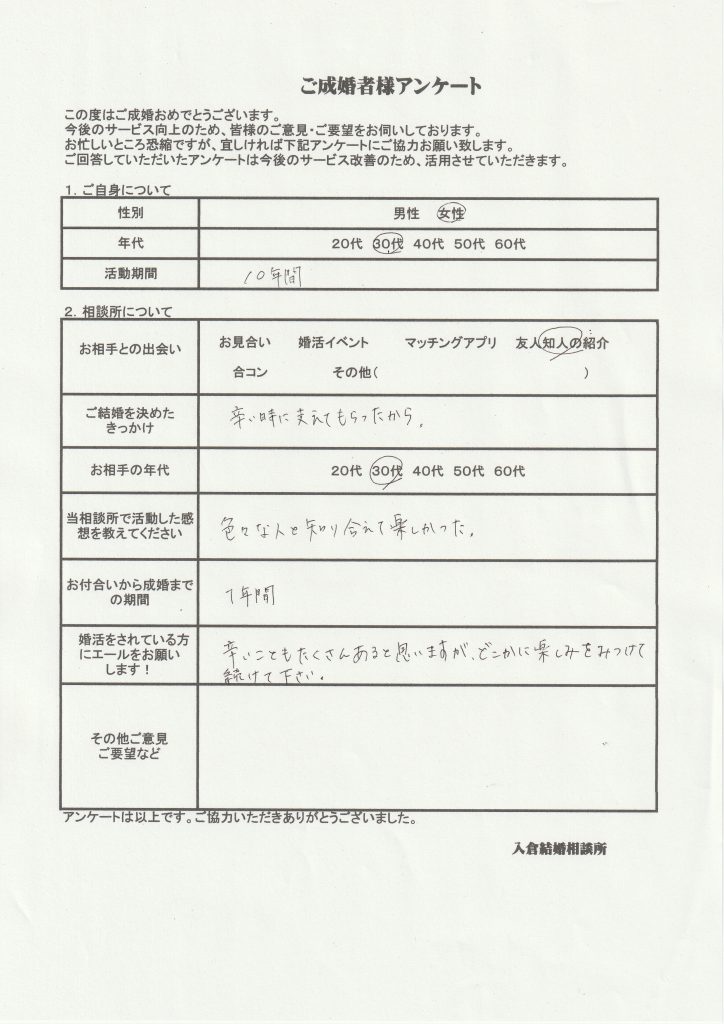 ご成婚者様アンケート
この度はご成婚おめでとうございます。
今後のサービス向上のため、皆様のご意見・ご要望をお伺いしております。
お忙しいところ恐縮ですが、宜しければ下記アンケートにご協力お願い致します。
ご回答していただいたアンケートは今後のサービス改善のため、活用させていただきます。
1. ご自身について
性別 男性 女性
年代 20代 30代 40代 50代 60代
活動期間 10年間
2. 相談所について
お相手との出会い
お見合い 婚活イベント マッチングアプリ 友人知人の紹介
合コン その他( )
ご結婚を決めた
きっかけ
辛い時に支えてもらったから。
お相手の年代 20代 30代 40代 50代 60代
当相談所で活動した感
想を教えてください
色々な人と知り合えて楽しかった。
お付合いから成婚まで
の期間
7年間
婚活をされている方
にエールをお願い
します!
辛いこともたくさんあると思いますが、どこかに楽しみをみつけて
続けて下さい。
その他ご意見
ご要望など
アンケートは以上です。ご協力いただきありがとうございました。
入倉結婚相談所